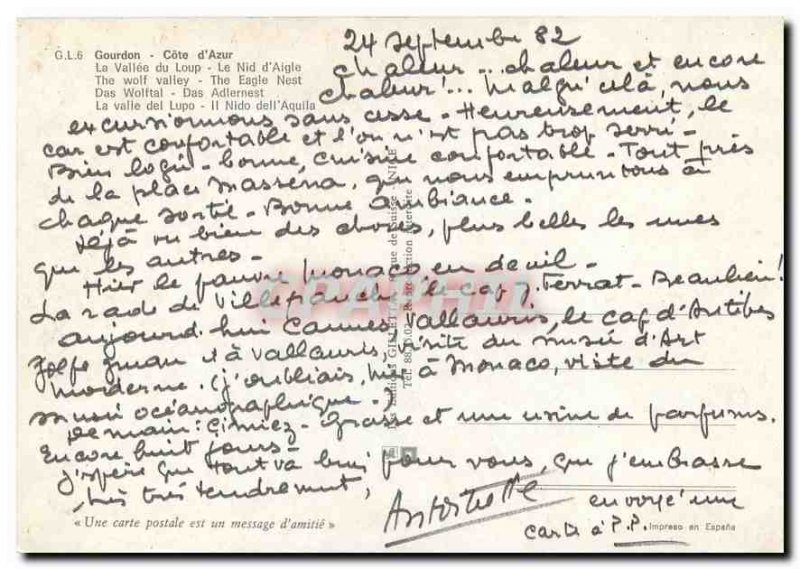 24 septembre 82
G.L.6 Gourdon - Côte d'Azur
La Vallée du Loup - Le Nid d'Aigle
The wolf valley - The Eagle Nest
Das Wolftal - Das Adlernest
La valle del Lupo - Il Nido dell'Aquila
Chaleur... chaleur et encore
chaleur!... Malgré celà, nous
excursionnons sans cesse - Heureusement, le
car est confortable et l'on n'est pas trop serré -
Bien logé - bonne cuisine confortable - Tout près
de la place Masséna, que nous empruntons à
chaque sortie - Bonne ambiance -
Déjà vu bien des choses, plus belles les unes
que les autres -
Hier le pauvre Monaco, en deuil -
La rade de Villefranche, le cap Ferrat - Beaulieu!
aujourd'hui Cannes, Vallauris, le cap d'Antibes
Golfe Juan et à Vallauris, visite du musée d'Art
moderne. (j'oubliais, hier à Monaco, visite du
musée océanographique -)
Demain: Cimiez - Grasse et une usine de parfums.
Encore huit jours -
J'espère que tout va bien pour vous, que j'embrasse
très très tendrement,
Antoinette
envoyé une
carte à P.P.
« Une carte postale est un message d'amitié »
Impreso en España
CPAPHIL